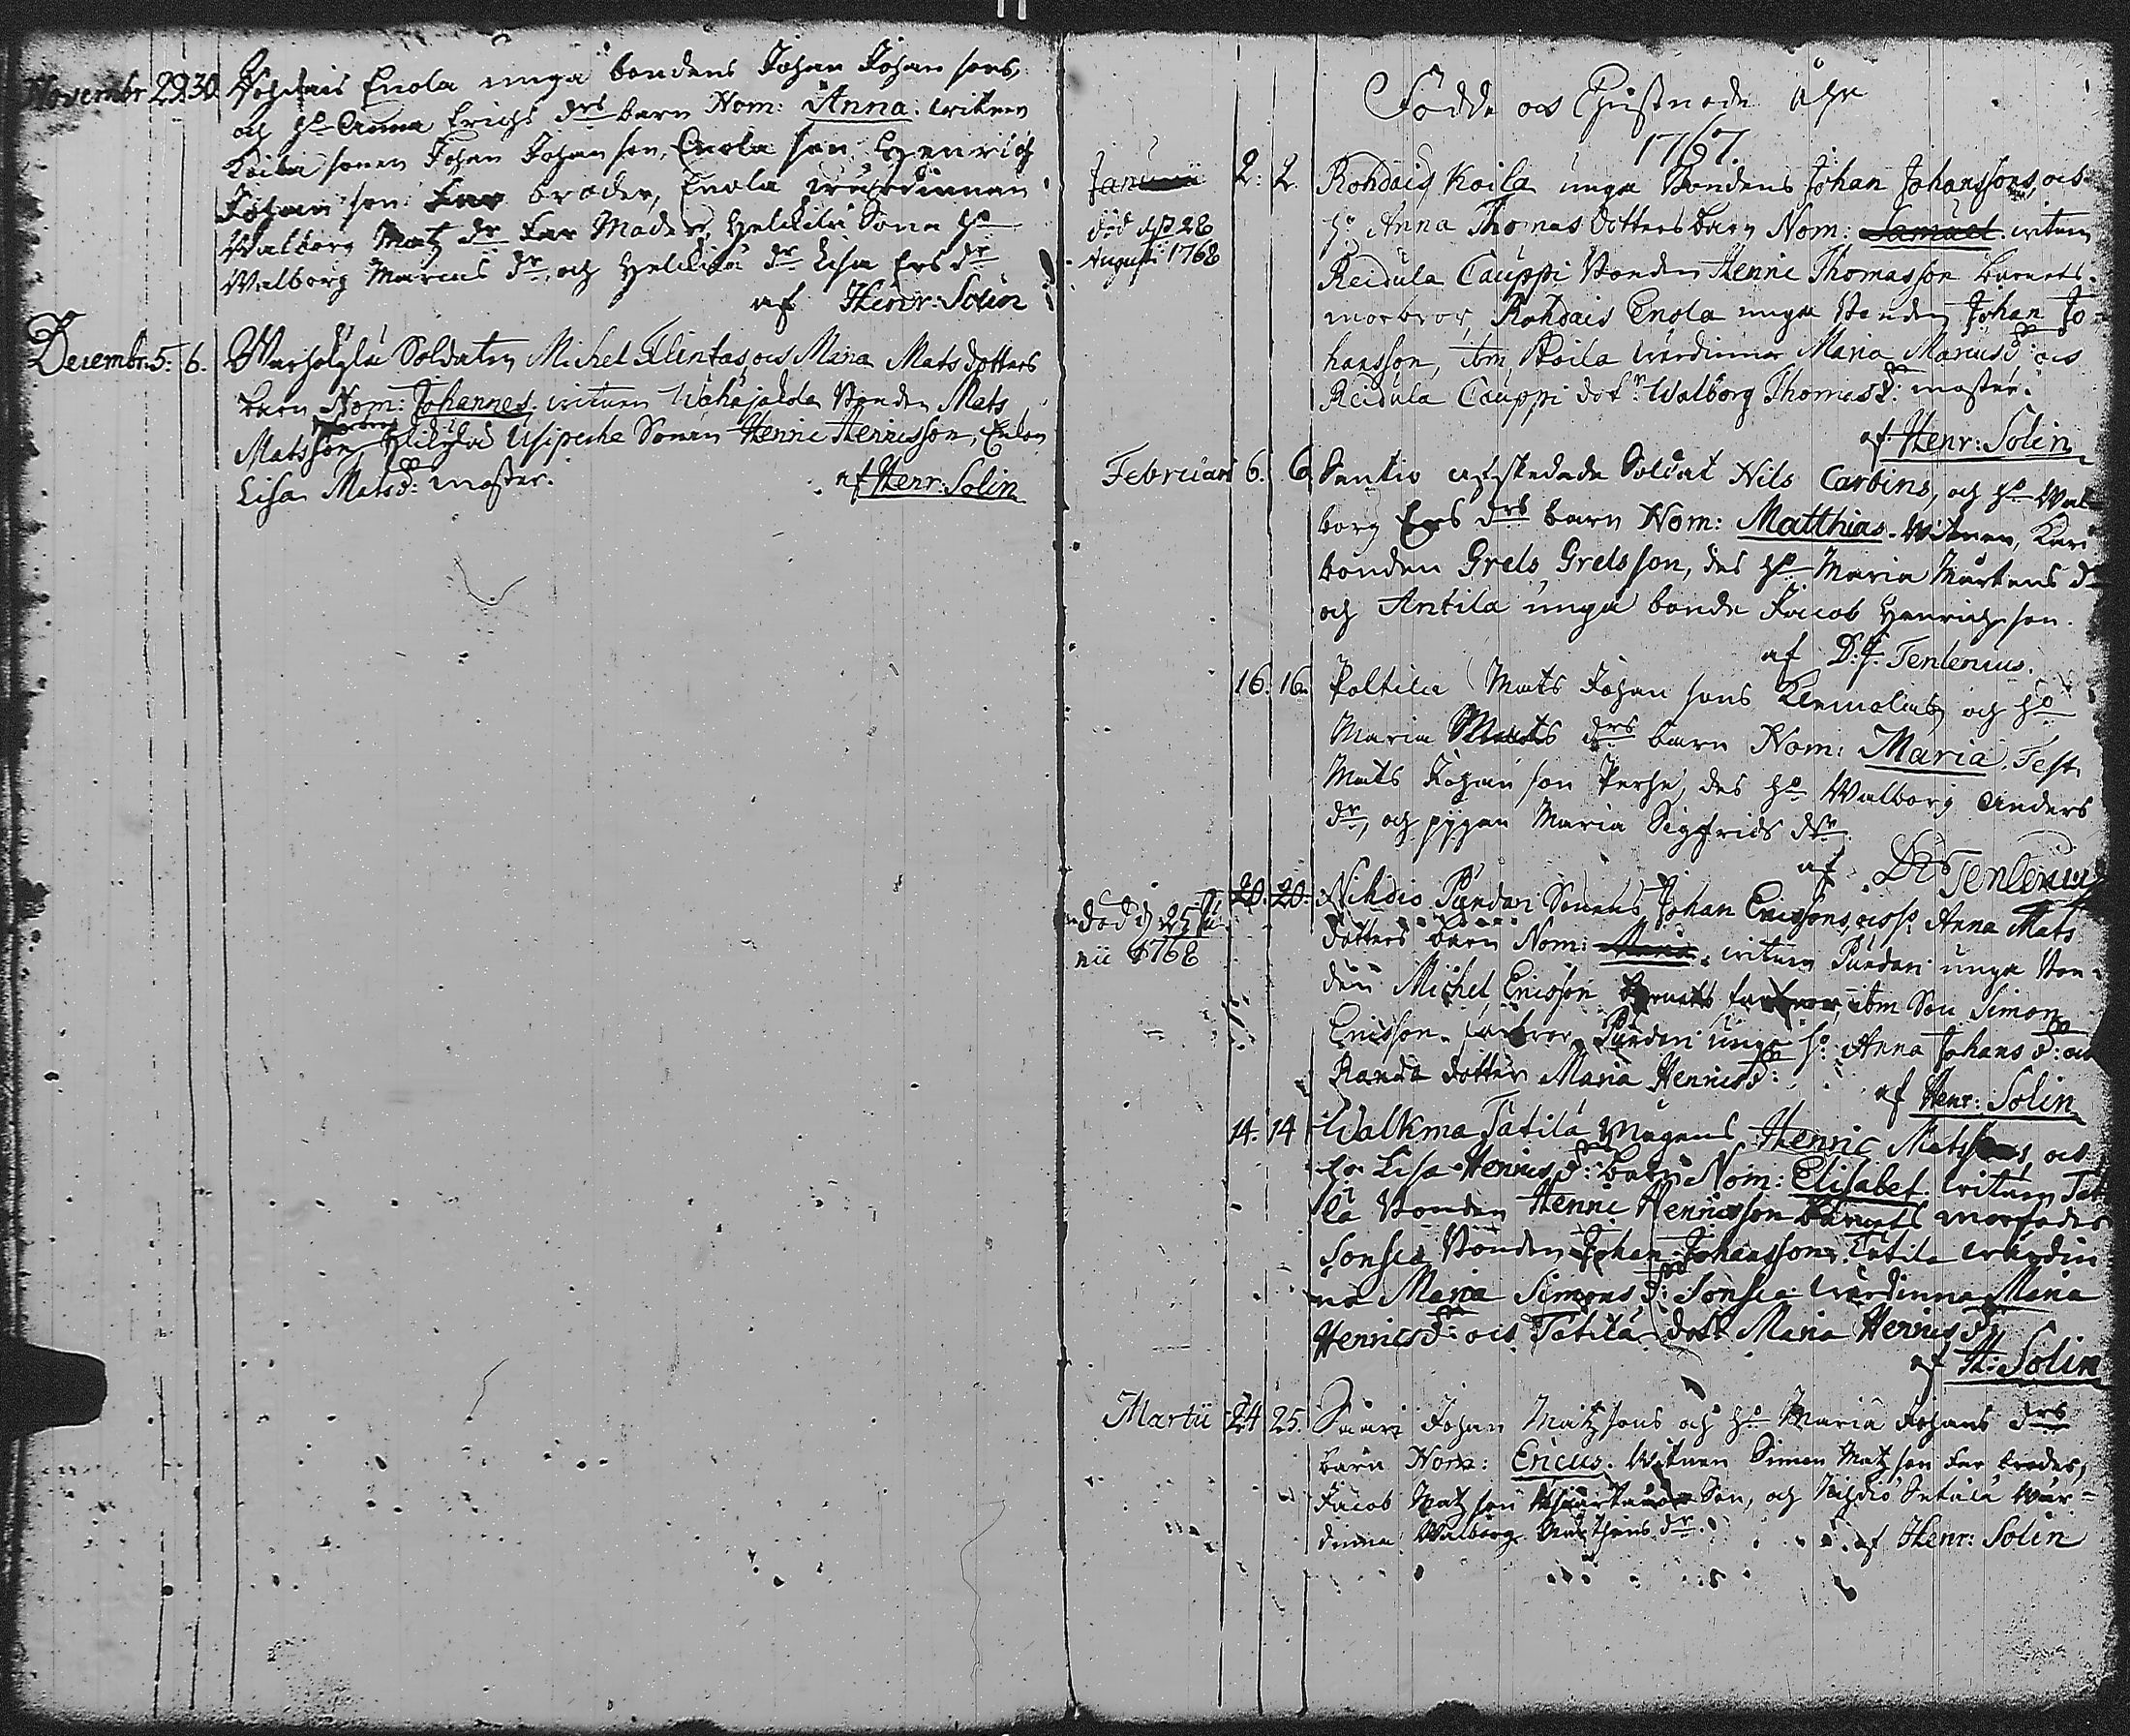 Novembr 29. 30. Rohdais Enola unga bondens Johan Johan sons,
och ho Anna Erichs drs barn Nom: Anna. witnen
Koila sonen Johan Johan son, Enola son Henrich
Johan son Far broder, Enola wärdinnan
Walborg Matz dr Far Moder, Heldelä Sone ho
Walborg Marcus dr, och Heldelä dr Lisa Ers dr
af Henr: Solin
Decembr. 5. 6. Soldaten Michel Flintas, och Maria Mats dotters
barn Nom: Johannes. witnen Wähäjalda Bonden Mats
Matsson, Sonen Henric Henricsson,
Lisa Matsd: moster. af Henr: Solin
Födde och Christnade åhr
1767.
Januarii 2. 2. Rohdais Koila unga Bondens Johan Johanssons, och
död d. 28
Augusti 1768
ho Anna Thomas dotters barn Nom: Samuel witnen
Reidula Cauppi Bonden Henric Thomasson barnets
morbror, Rohdais Enola unga Bonden Johan Jo-
hansson, ibm Koila wärdinna Maria Marcusd: och
Reidula Cauppi dotr Walborg Thomasd: moster.
af Henr: Solin
Februari 6. 6. Santio afskedade Soldat Nils Carbins, och ho Wal-
borg Ers drs barn Nom: Matthias. Witnen, Kari
bonden Grels Grelsson, des ho Maria Mårtens dr
och Antila unga bonde Jacob Henrichson.
af D: J. Tenlenius.
16. 16. Poltila Mats Johan sons och ho
Maria Mats drs barn Nom: Maria. Test.
Mats Johan son Perhe, des ho Walborg Anders
dr, och pigan Maria Sigfrids dr
af Tenlenius
20. 20. Nihdio Pundari Sonens Johan Ericssons, och ho Anna Mats
död d. 25 Ju-
nii 1768
dotters barn Nom: Maria. witnen Pundari unga Bon-
den Michel Ericsson barnets farbror, ibm Son Simon
Ericsson farbror, Pundari unga ho Anna Johansd: och
Randa dotter Maria Henricsd:
af Henr: Solin
14. 14 Walkma Tatila Mågens Henric Matssons, och
ho Lisa Henricsd: barn Nom: Elisabet. witnen Tati-
la Bonden Henric Henricsson barnets morfader
Sonsea Bonden Johan Johansson. Tatila wärdin-
na Maria Simonsd: Sonsea wärdinna Maria
Henricsd: och Tatila dotr Maria Henricsd:
af H: Solin
Martii 24 25. Saari Johan Matz sons och ho Maria Johans drs
barn Nom: Ericus. Witnen Simon Matz son Far broder,
Jacob Matz son Son, och Nihdio Sutela Wär-
dinna Walborg Matthius dr. af Henr: Solin